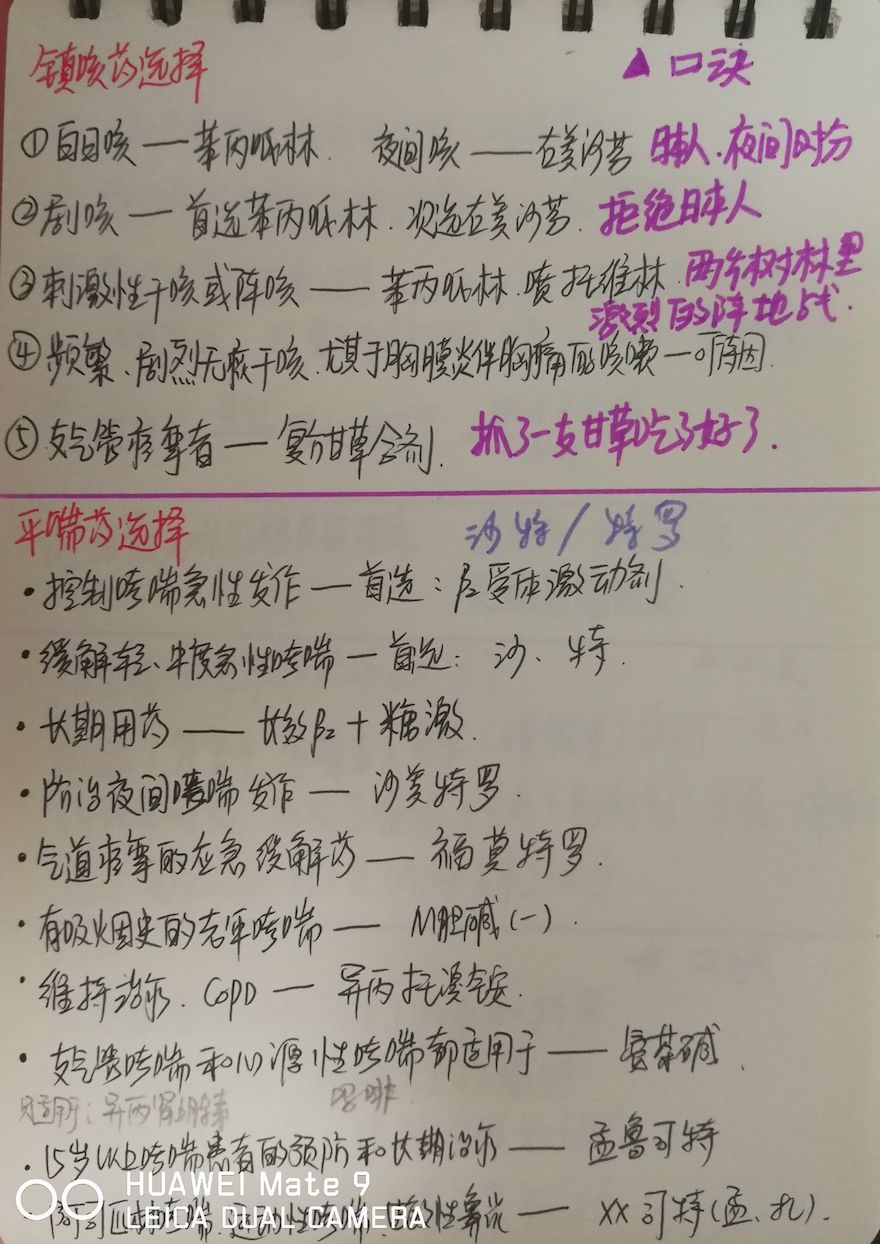 镇咳药选择 ▲口诀
①白日咳——苯丙哌林. 夜间咳——右美沙芬 日林人.夜间时扮
②剧咳——首选苯丙哌林.次选右美沙芬. 拒绝日本人
③刺激性干咳或阵咳——苯丙哌林.喷托维林. 两个树林里
激烈的阵地战.
④频繁、剧烈无痰干咳.尤其于胸膜炎伴胸痛的咳嗽—可待因.
⑤支气管痉挛者—复方甘草合剂. 抓了一支甘草吃了好了.
平喘药选择 沙特/特罗
·控制哮喘急性发作—首选:β2受体激动剂.
·缓解轻、中度急性哮喘—首选: 沙、特.
·长期用药——长效β2+糖激.
·防治夜间哮喘发作—沙美特罗.
·气道痉挛的应急缓解药—福莫特罗.
·有吸烟史的老年哮喘—M胆碱(一).
·维持治疗.COPD—异丙托溴铵.
·支气管哮喘和心源性哮喘都适用于——氨茶碱.
只适用于:异丙肾上腺素 吗啡.
·15岁以上哮喘患者的预防和长期治疗——孟鲁司特
·阿司匹林哮喘.运动性哮喘. —XX司特(孟、扎).
HUAWEI Mate 9
LEICA DUAL CAMERA